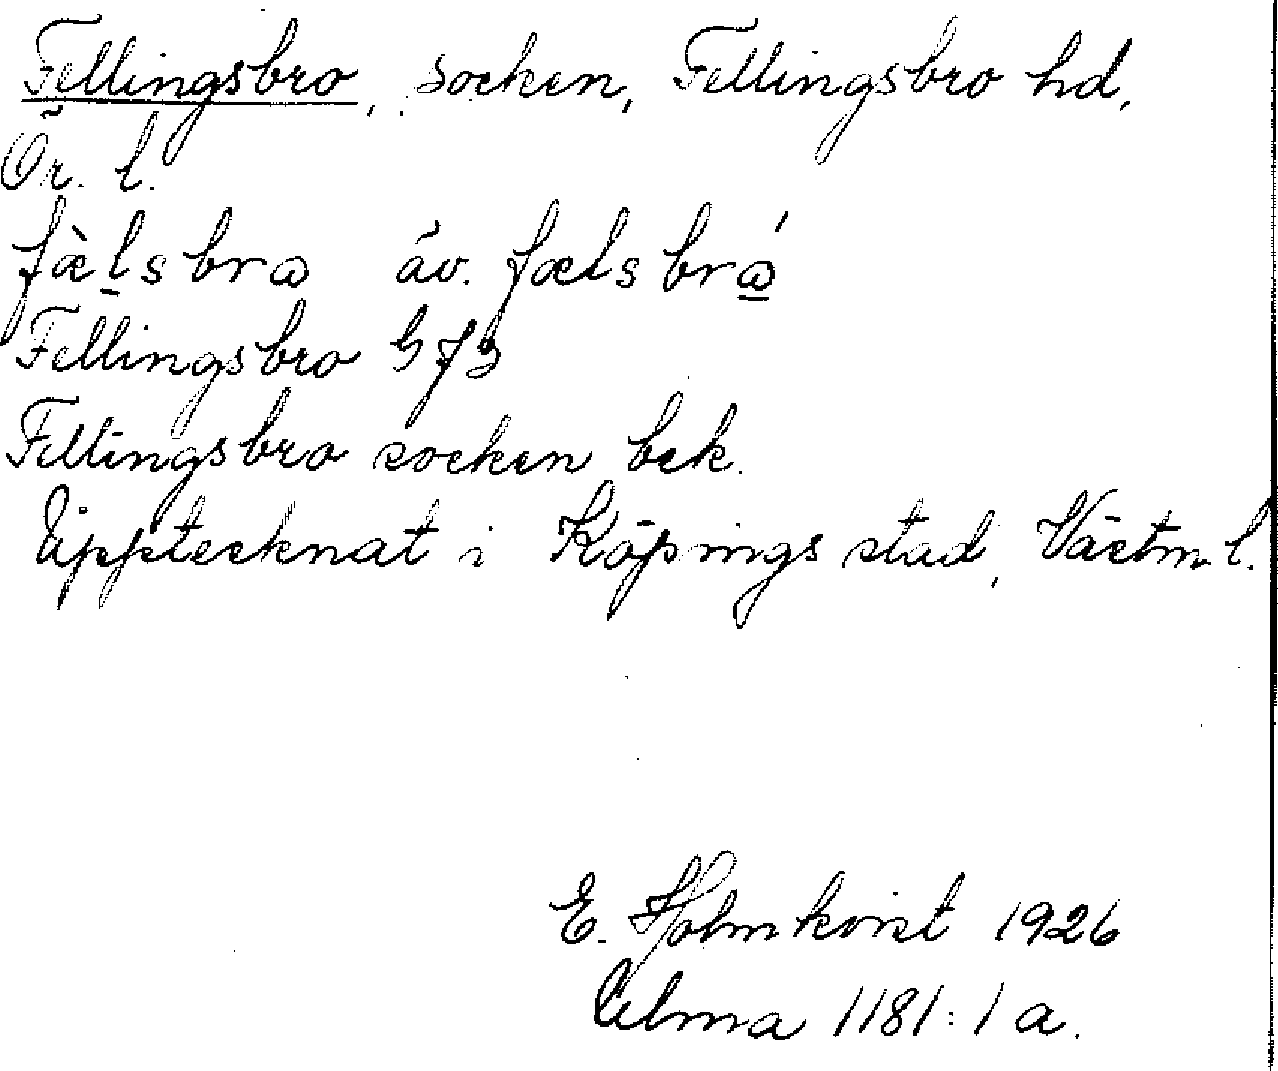 Fellingsbro, socken, Fellingsbro hd,
Ör. l.
fæ̀l̠sbrɷ äv. fælsbrɷ̠́
Fellingsbro GfS
Fellingsbro socken bek.
Upptecknat i Köpings stad, Västm. l.
E. Holmkvist 1926
Ulma 1181:1 a.